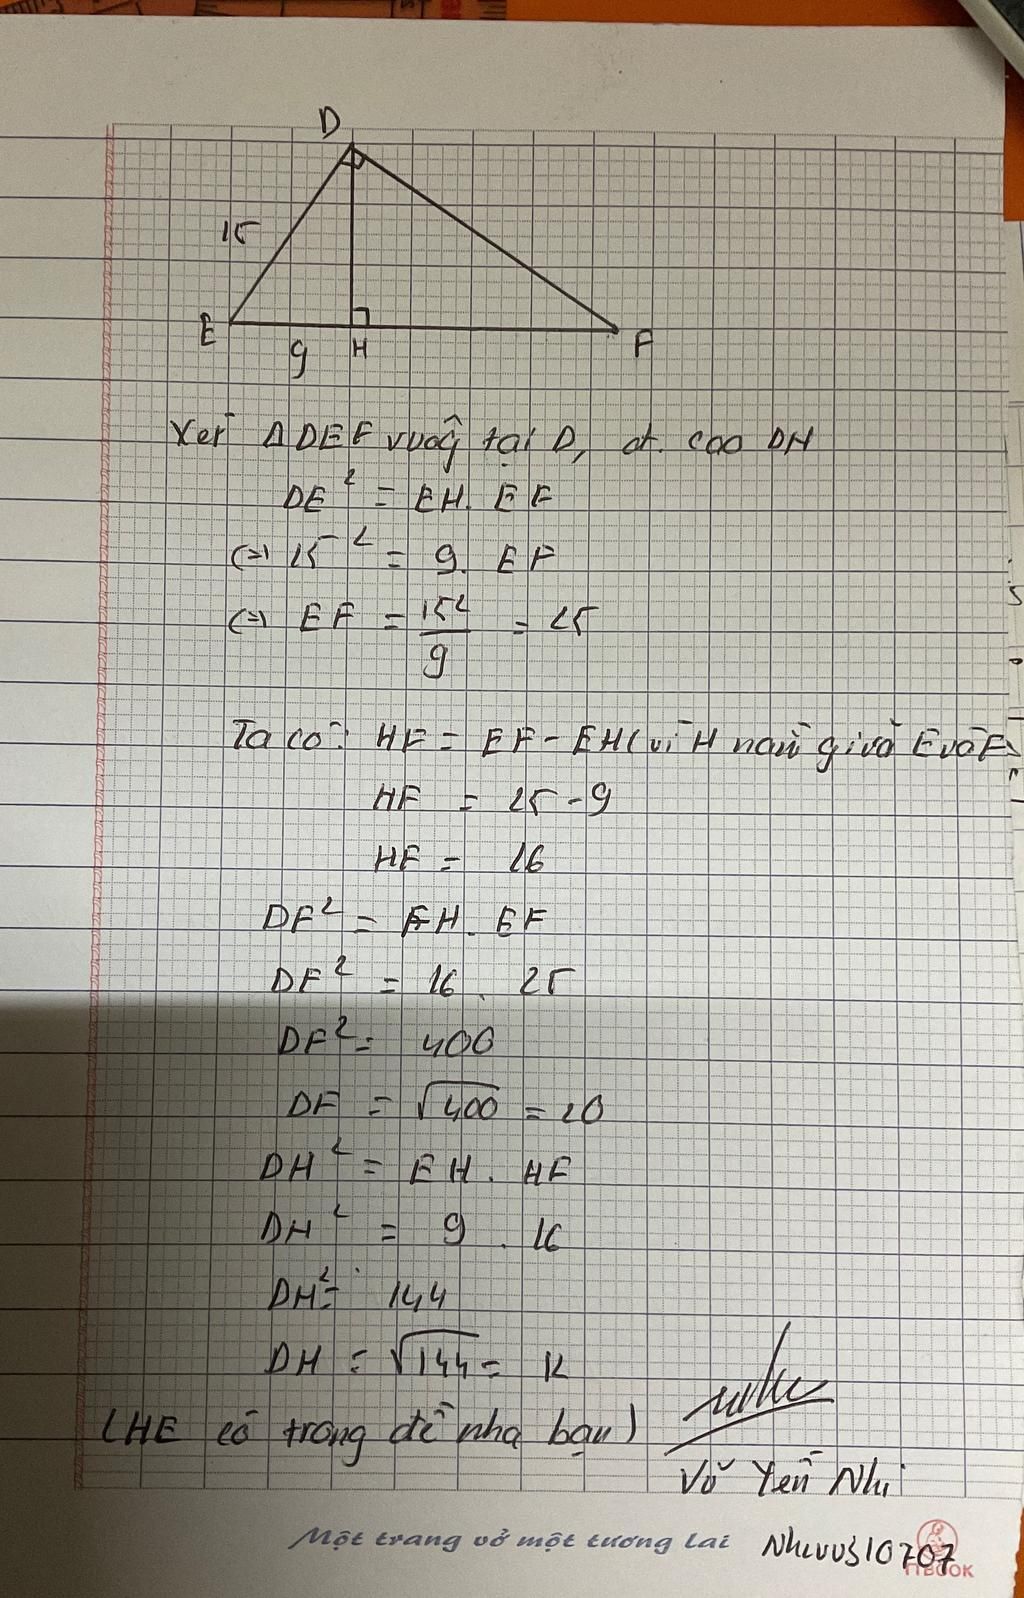 D
15
E
9
H
F
Xét Δ DEF vuôg tại D, đt. cao DH
DE² = EH. EF
(=) 15² = 9. EF
(=) EF = 15²/9 = 25
Ta có: HF = EF - EH (vì H nằm giữa E và F)
HF = 25 - 9
HF = 16
DF² = FH. EF
DF² = 16 . 25
DF² = 400
DF = √400 = 20
DH² = EH . HF
DH² = 9 . 16
DH² = 144
DH = √144 = 12
(HE có trong đề nha bạn)
Võ Yến Nhi
Một trang vở một tương lai
Nhivvo310707